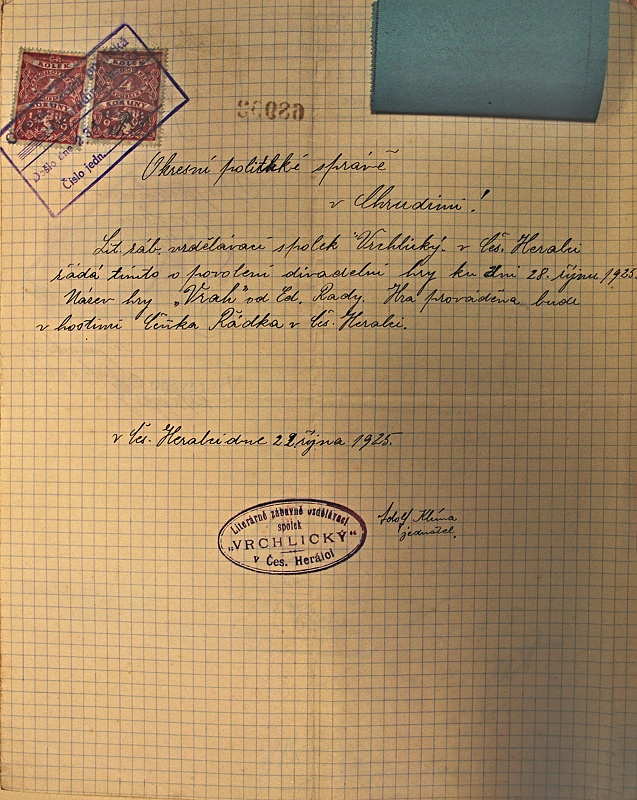 KOLEK
1
KORUNY
KOLEK
1
KORUNY
Došlo dne
Číslo jedn.
Okresní politické správě
v Chrudimi!
Lit. záb. vzdělávací spolek "Vrchlický" v Čes. Heralci
žádá tímto o povolení divadelní hry ku dni 28. říjnu 1925.
Název hry „Vrah" od Ed. Rady. Hra prováděna bude
v hostinci Čeňka Řádka v Čes. Heralci.
v Čes. Heralci dne 22 října 1925.
Literárně zábavně vzdělávací
spolek
„VRCHLICKÝ"
v Čes. Herálci
Adolf Klíma
jednatel.